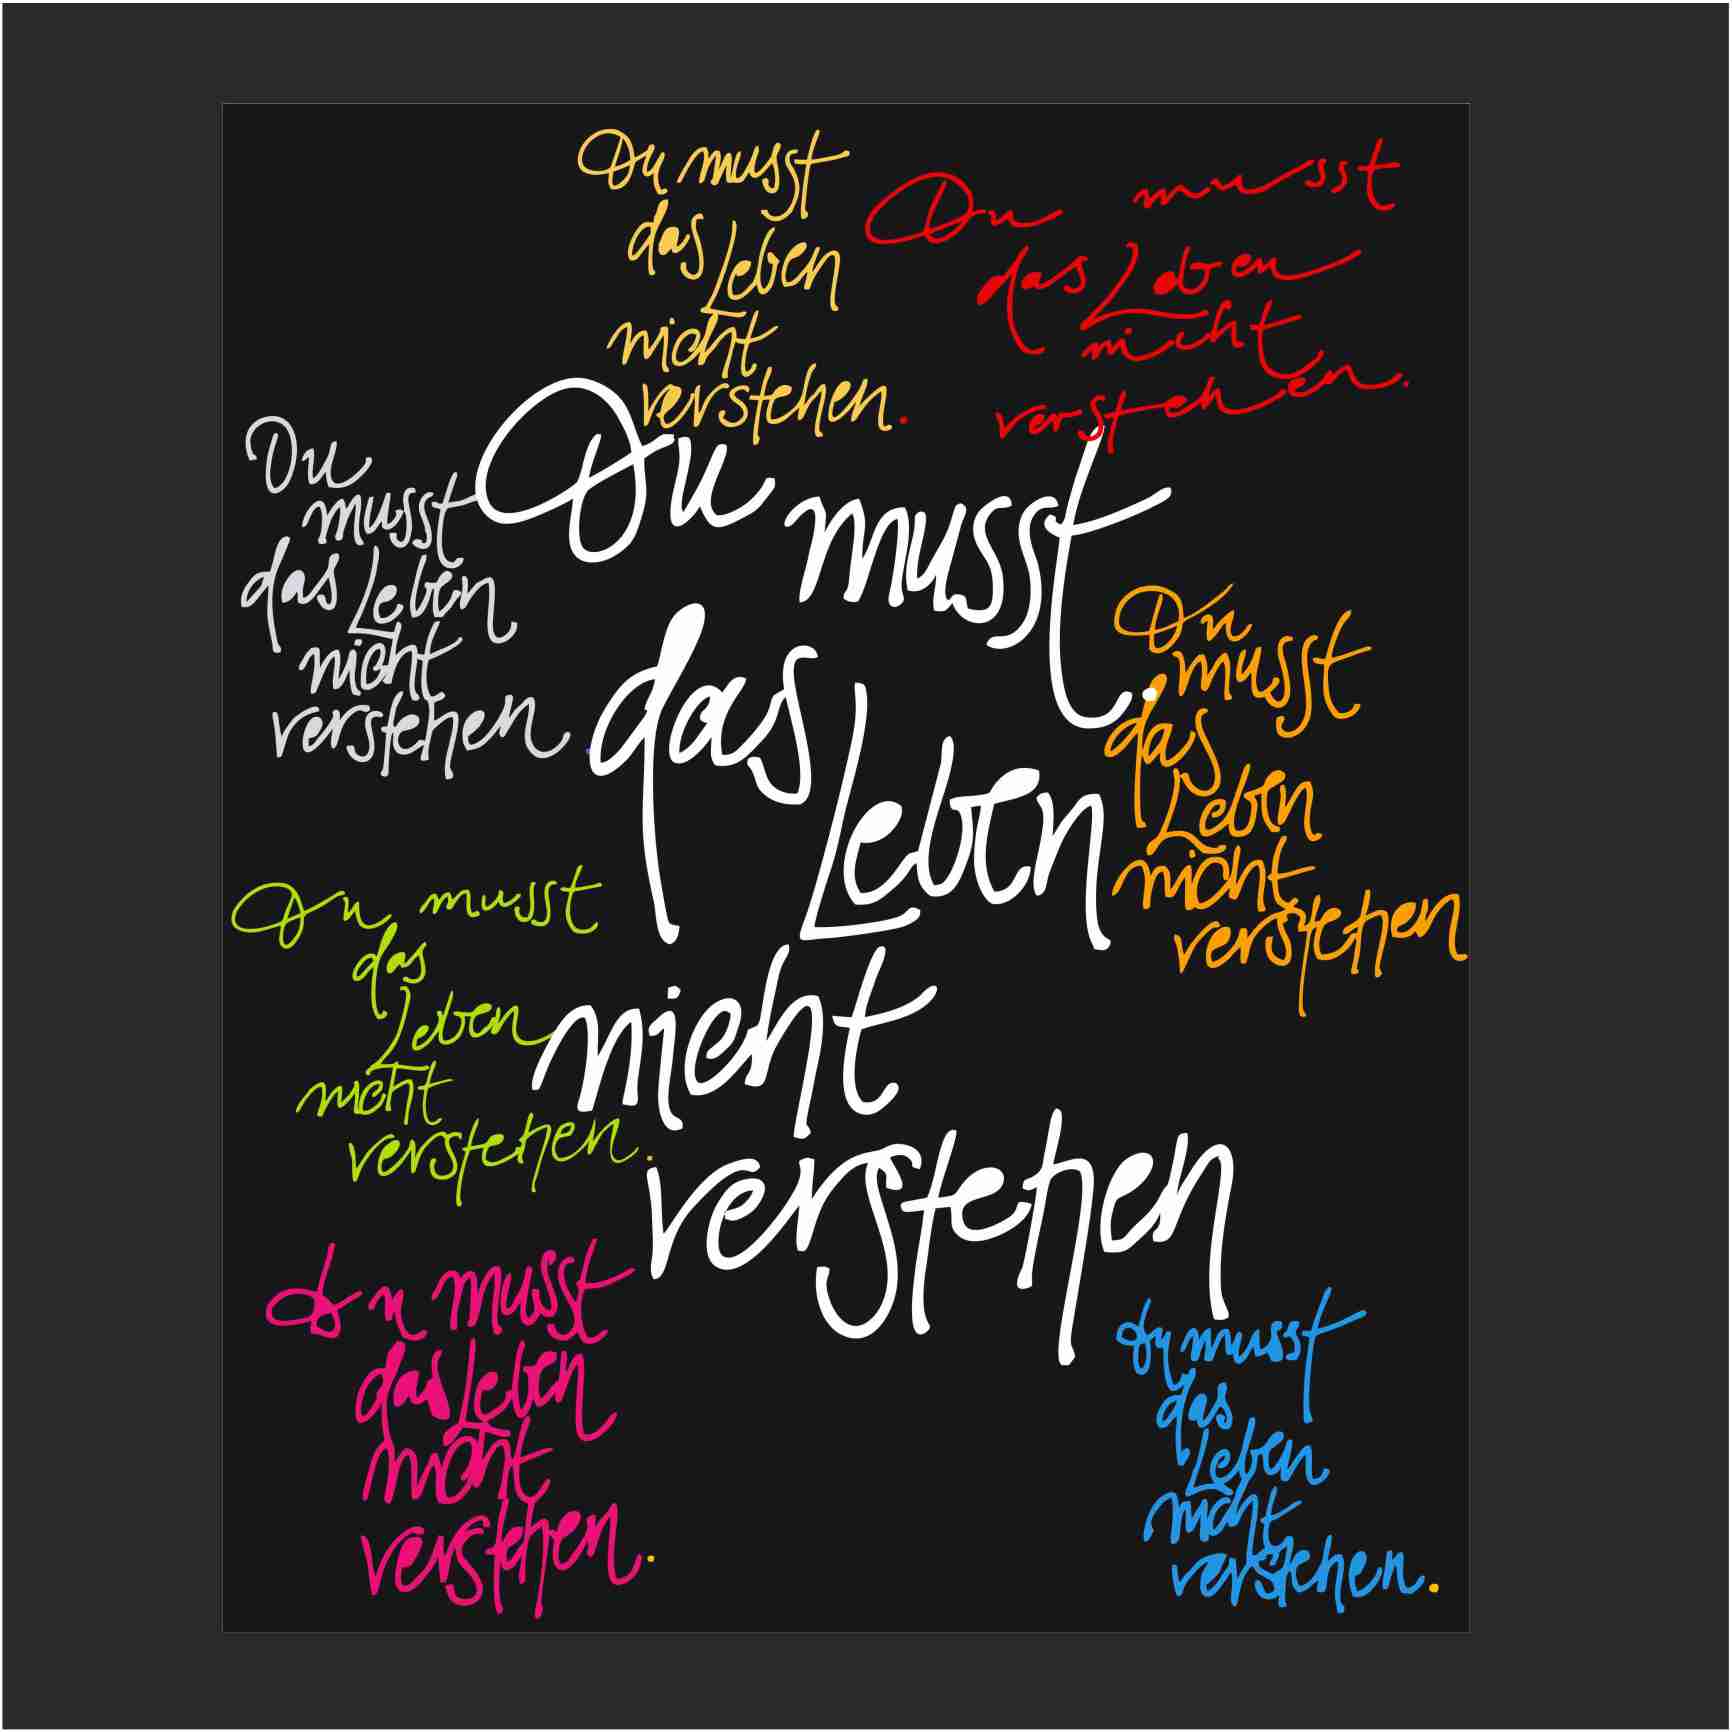 Du musst
das Leben
nicht
verstehen.
Du musst
das Leben
nicht
verstehen.
Du
musst
das Leben
nicht
verstehen.
Du musst
das
Leben
nicht
verstehen
Du
musst
das
Leben
nicht
verstehen
Du musst
das
Leben
nicht
verstehen.
Du musst
das Leben
nicht
verstehen.
du musst
das
Leben
nicht
verstehen.